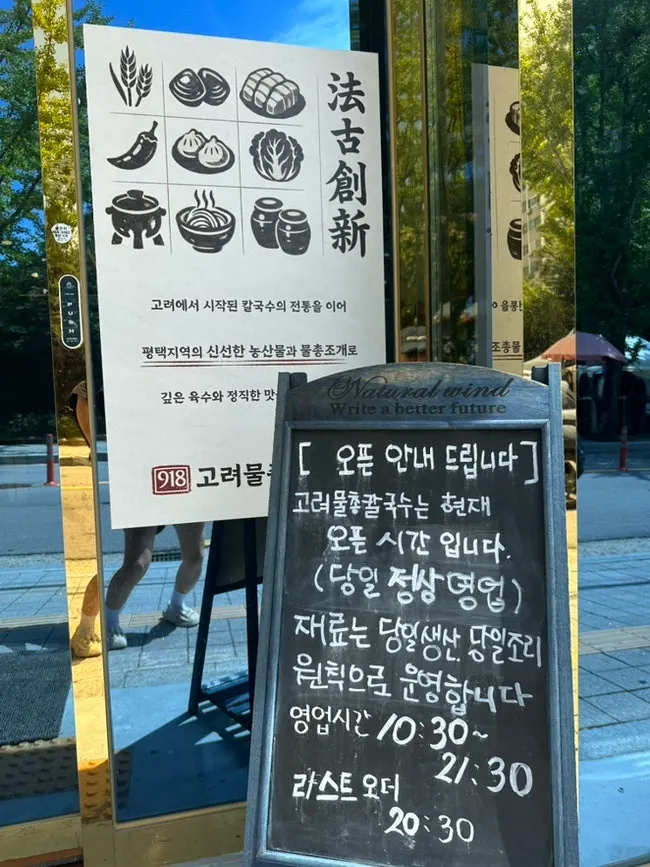 法古創新
고려에서 시작된 칼국수의 전통을 이어
평택지역의 신선한 농산물과 물총조개로
깊은 육수와 정직한
918 고려물
PUSH
Natural wind
Write a better future
[ 오픈 안내 드립니다 ]
고려물총칼국수는 현재
오픈 시간 입니다.
(당일 정상 영업)
재료는 당일생산. 당일조리
원칙으로 운영합니다
영업시간 10:30~
21:30
라스트 오더
20:30